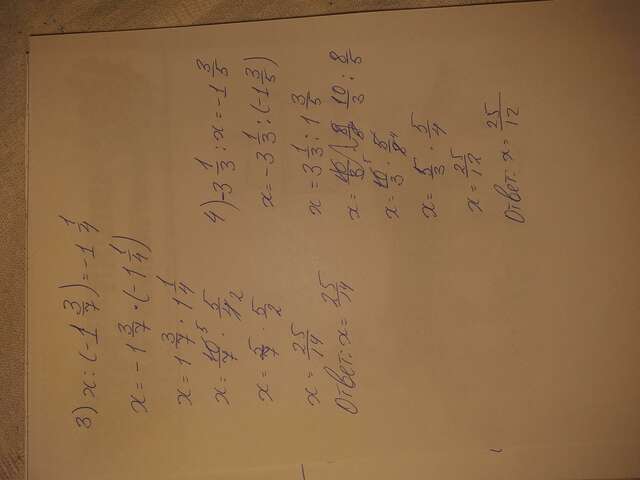 3) x : (-1 3/7) = -1 1/4
x = -1 3/7 · (-1 1/4)
x = 1 3/7 · 1 1/4
x = 10 5/7 · 5/4 2
x = 5/7 · 5/2
x = 25/14
Ответ: x = 25/14
4) -3 1/3 : x = -1 3/5
x = -3 1/3 : (-1 3/5)
x = 3 1/3 : 1 3/5
x = 10/3 : 8/5
x = 10 5/3 · 5/8 4
x = 5/3 · 5/4
x = 25/12
Ответ: x = 25/12